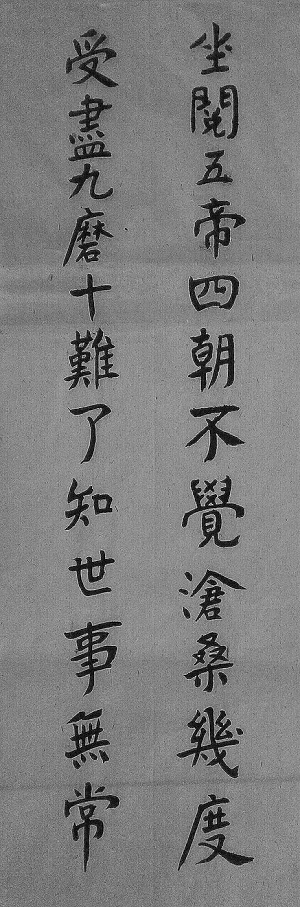 坐閱五帝四朝不覺滄桑幾度
受盡九磨十難了知世事無常